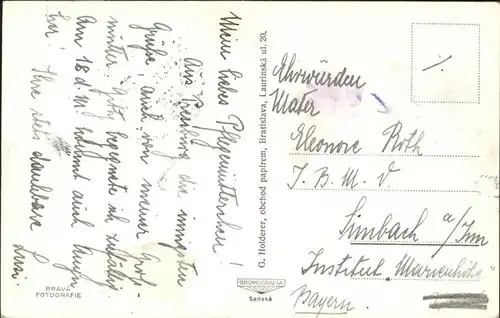 Mein liebes Pflegemütterchen!
Aus Preßburg die innigsten
Grüße, auch von meiner Groß-
mutter. Götz begegnete ich zufällig.
Am 18. d. M. kommt auch
her! Ihre stets dankbare
Luisi
PRAVÁ
FOTOGRAFIE
G. Holderer, obchod papfrem, Bratislava, Laurinská ul. 20.
BROMOGRAFIA
Sadská
Ehrwürden
Mater
Eleonore Roth
I. B. M. V.
Simbach a/Inn
Institut "Marienhöhe"
Bayern.